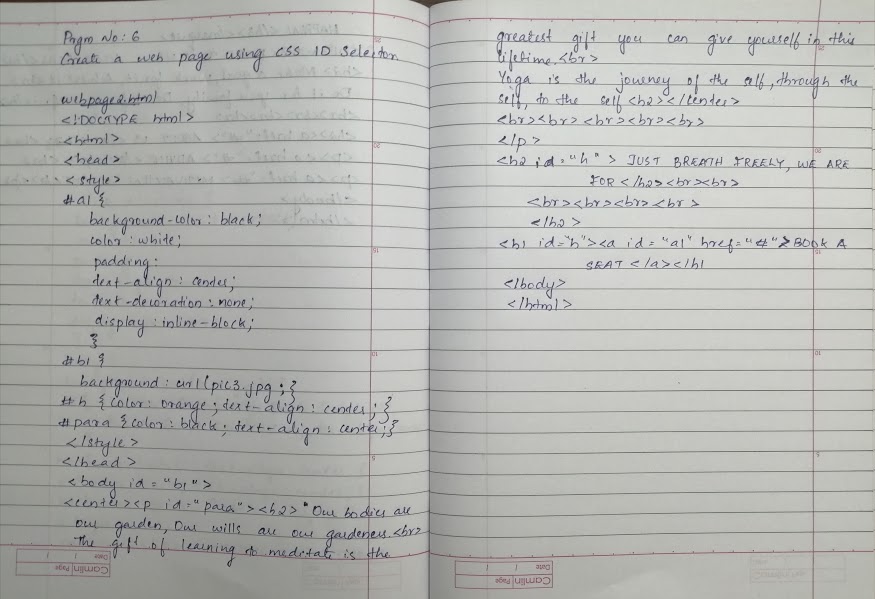 Prgm No: 6
Create a web page using CSS ID Selector
webpage2.html
<!DOCTYPE html>
<html>
<head>
<style>
#a1 {
background-color: black;
color: white;
padding:
text-align: center;
text-decoration: none;
display: inline-block;
}
#b1 {
background: url(pic3.jpg;}
#h {color: orange; text-align: center;}
#para {color: black; text-align: center;}
</style>
</head>
<body id = "b1">
<center><p id="para"><h2>"Our bodies are
our garden, Our wills are our gardeners.<br>
The gift of learning to meditate is the
greatest gift you can give yourself in this
lifetime.<br>
Yoga is the journey of the self, through the
self, to the self <h2></center>
<br><br><br><br><br>
</p>
<h2 id="h"> JUST BREATH FREELY, WE ARE
FOR </h2><br><br>
<br><br><br><br>
</h2>
<h1 id="h"><a id="a1" href="#">BOOK A
SEAT </a></h1
</body>
</html>
Date / /
Camlin Page
Date / /
Camlin Page